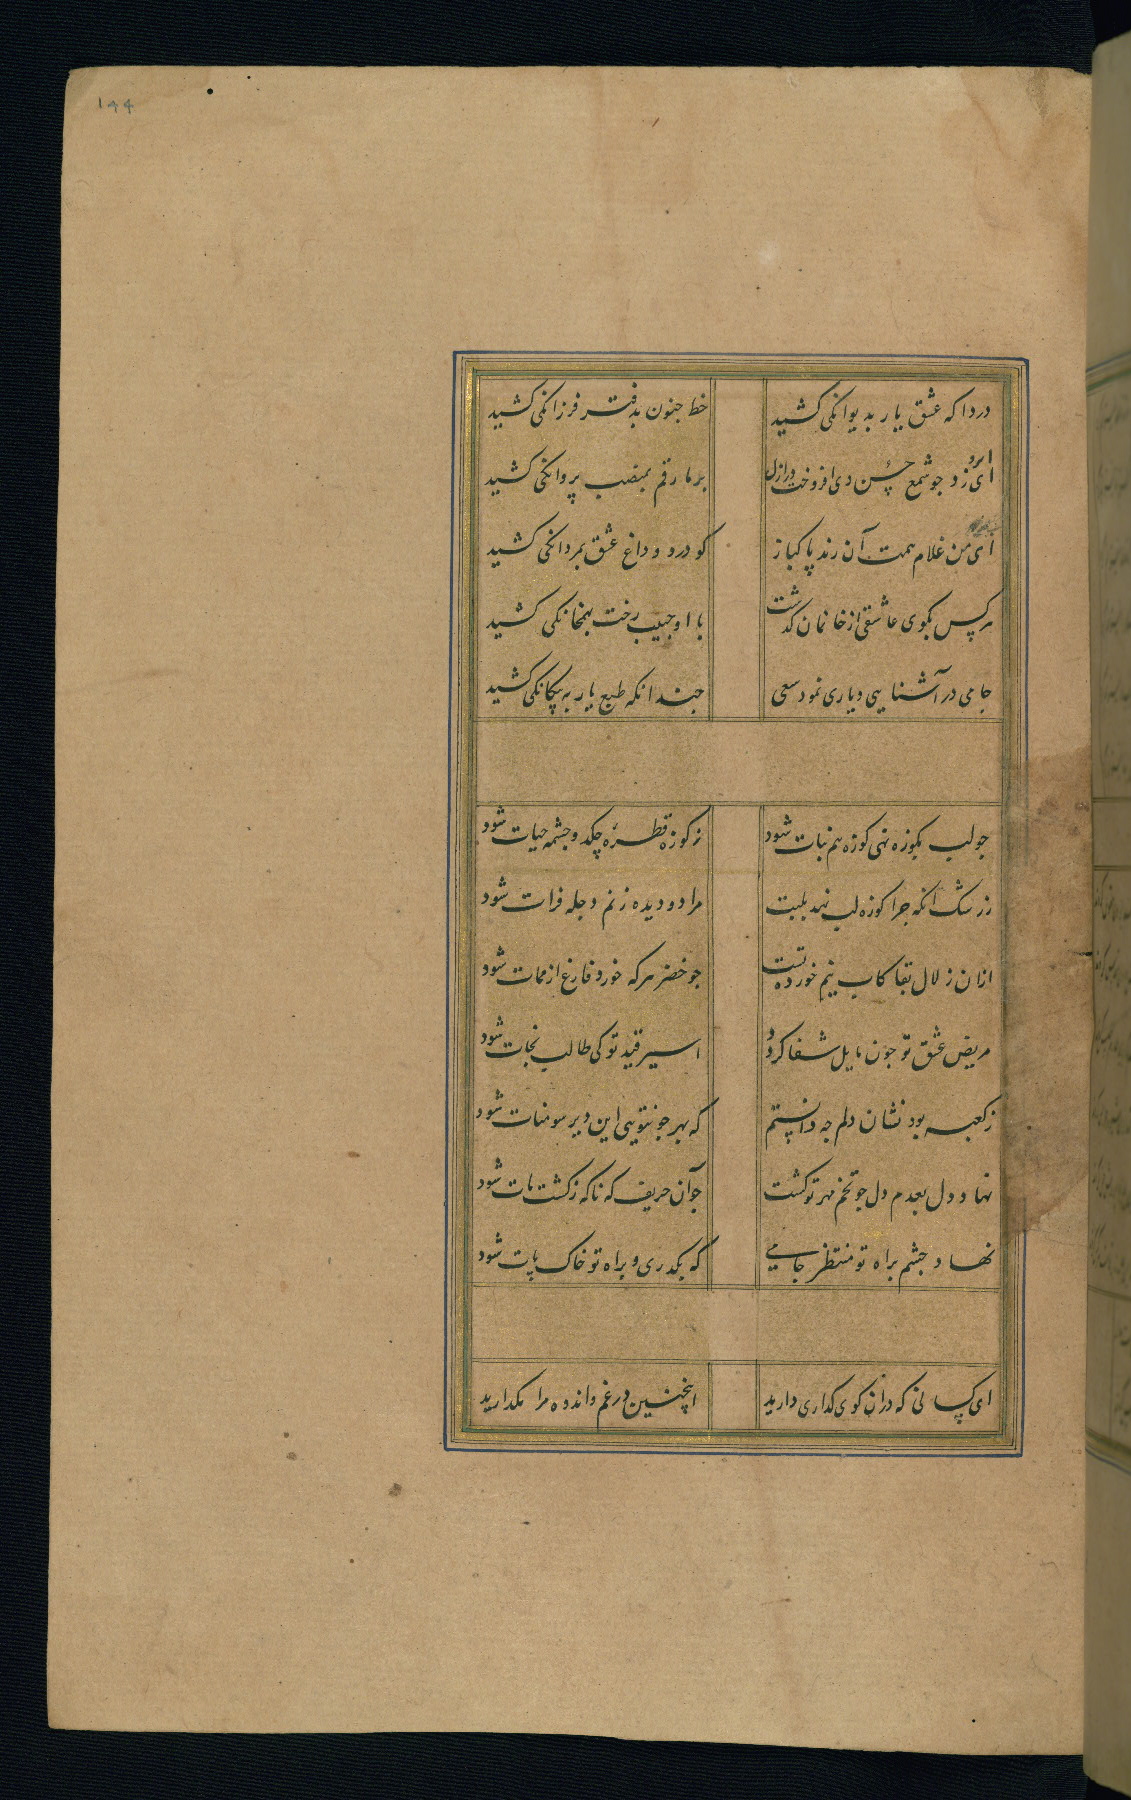 ۱۴۴
دردا که عشق یار بدیوانکی کشید خط جنون بدفتر فرزانکی کشید
ایزد جو شمع حسن وی افروخت در ازل بر ما رقم بمنصب پروانکی کشید
ای من غلام همت آن رند پاکباز کو درد و داغ عشق بمردانکی کشید
هر کس بکوی عاشقی از خانمان کذشت با او حبیب رخت بهمخانکی کشید
جامی در آشنایی و یاری نمود سعی جندانکه طبع یار به بیکانکی کشید
جو لب بکوزه نهی کوزه هم نبات شود ز کوزه قطره چکد و جشمه حیات شود
ز رشک آنکه جرا کوزه لب نهد بلبت مرا دو دیده ز نم دجله فرات شود
ازان زلال بقا کاب نیم خورده تست جو خضر هر که خورد فارغ از ممات شود
مریض عشق تو جون مایل شفا کردد اسیر قید تو کی طالب نجات شود
ز کعبه بود نشان دلم جه دانستم که بهر جو تویی این دیر سومنات شود
نهاد دل بعدم دل جو تخم مهر تو کشت جو آن حریف که ناکه ز کشت مات شود
نهاد جشم براه تو منتظر جامی که بکذری و براه تو خاک پات شود
ای کسانی که دران کوی کذاری دارید اینچنین در غم و اندوه مرا مکذارید